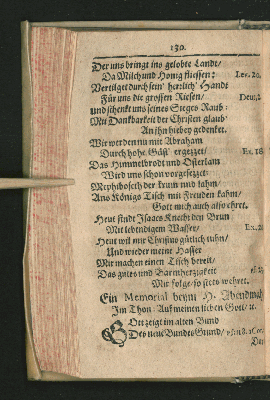 130.
Der uns bringt ins gelobte Landt/
Da Milch und Honig fliessen: Lev. 20.
Vertilget durch sein' hertzlich' Handt
Für uns die grossen Riesen/ Deut. 2
und schenkt uns seines Sieges Raub:
Mit Dankbarkeit der Christen glaub'
An ihn hiebey gedenket.
Wir werden nu mit Abraham
Durch hohe Gäst' ergetzet/ Ex. 18
Das Himmelbrodt und Osterlam
Wird uns schon vorgesetzet:
Mephiboseth der krum und lahm/
Ans Königs Tisch mit Freuden kahm/
Gott mich auch also ehret.
Heut findt Isaacs Knecht den Brun
Mit lebendigem Wasser/ Ex. 2
Heut wil mir Christus gütlich tuhn/
Und wieder meine Hasser
Mir machen einen Tisch bereit/
Das gutes und Barmhertzigkeit
Mir folge/ so stets wehret.
Ein Memorial beym H. Abendmahl
Im Thon: Auf meinen lieben Gott/
Gott zeigt im alten Bund
Des neuen Bundes Grund/